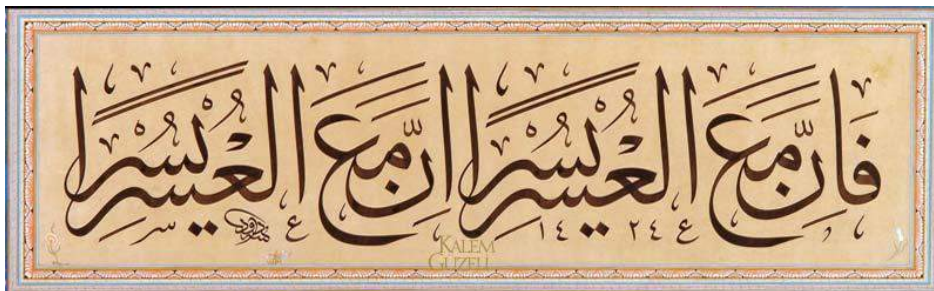 فَاِنَّ مَعَ الْعُسْرِ يُسْرًا اِنَّ مَعَ الْعُسْرِ يُسْرًا
١٤٢٤
KALEM
GÜZELİ